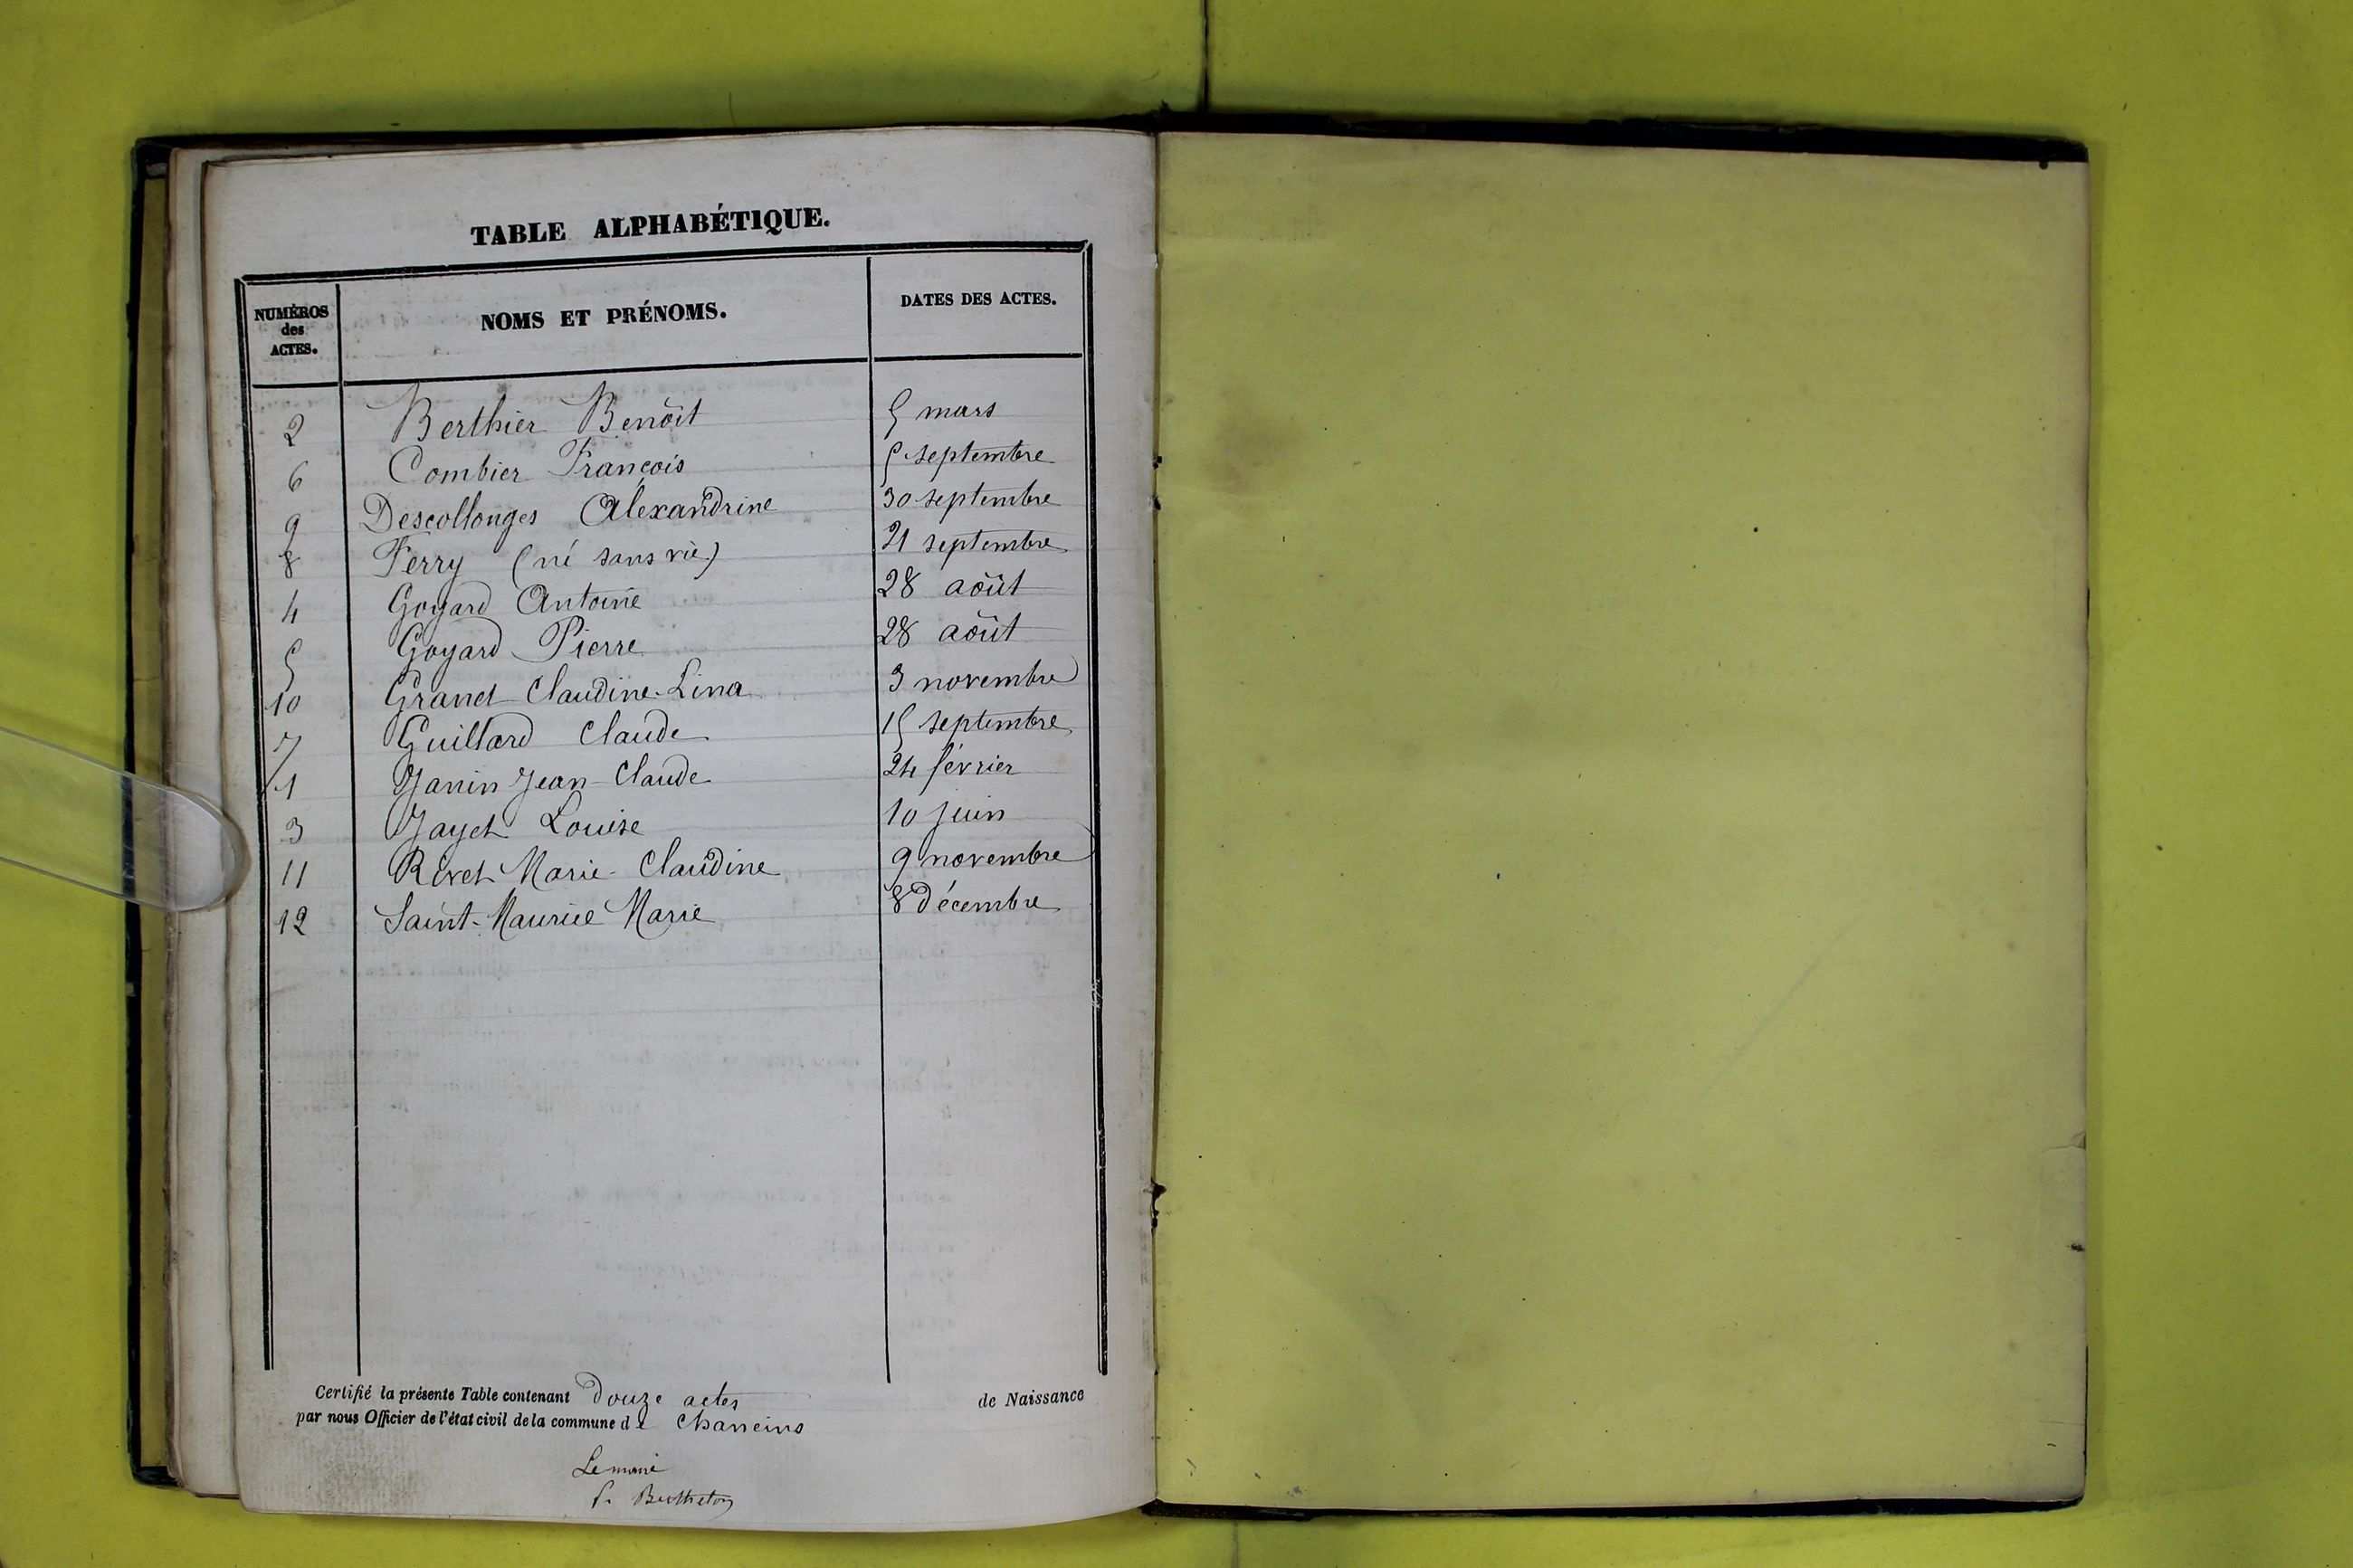 TABLE ALPHABÉTIQUE.
NUMÉROS des ACTES. NOMS ET PRÉNOMS. DATES DES ACTES.
2 Berthier Benoît 5 mars
6 Combier François 5 septembre
9 Descollonges Alexandrine 30 septembre
8 Ferry (né sans vie) 21 septembre
4 Goyard Antoine 28 août
5 Goyard Pierre 28 août
10 Granet Claudine-Lina 3 novembre
7 Guillard Claude 15 septembre
1 Janin Jean-Claude 24 février
3 Jayet Louise 10 juin
11 Rivet Marie-Claudine 9 novembre
12 Saint-Maurice Marie 8 décembre
Certifié la présente Table contenant Douze actes de Naissance
par nous Officier de l'état civil de la commune de Chaneins
Le maire
Berthelon